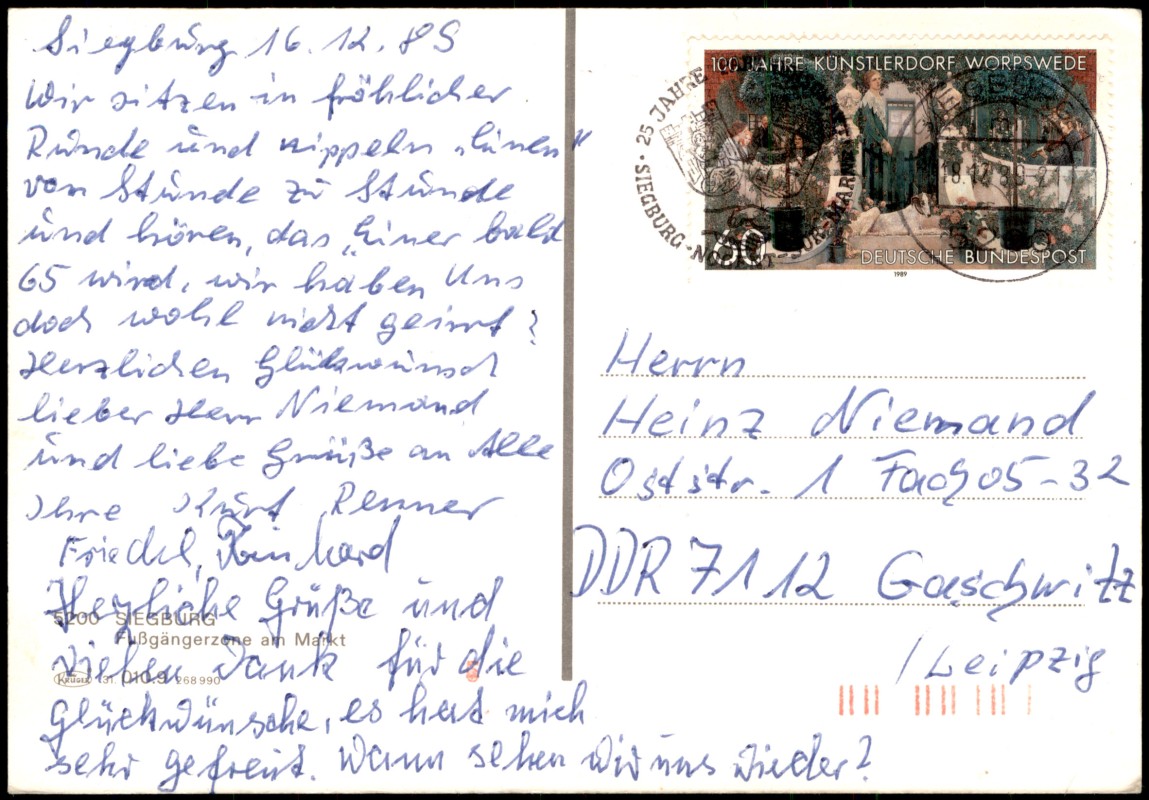 Siegburg 16.12.89
Wir sitzen in fröhlicher
Runde und nippeln „Einen“
von Stunde zu Stunde
und hören, das „Einer bald
65 wird, wir haben Uns
doch wohl nicht geirrt?
Herzlichen Glückwunsch
lieber Herr Niemand
und liebe Grüße an Alle
Ihre Kurt Renner
Friedel, Reinhard
Herzliche Grüße und
vielen Dank für die
Glückwünsche, es hat mich
sehr gefreut. Wann sehen wir uns wieder?
5200 SIEGBURG
Fußgängerzone am Markt
KRÜGER 31. 010.9 268990
100 JAHRE KÜNSTLERDORF WORPSWEDE
60
DEUTSCHE BUNDESPOST
1989
25 JAHRE
SIEGBURG
18.12.89
Herrn
Heinz Niemand
Oststr. 1 Fach 05-32
DDR 7112 Gaschwitz
/Leipzig